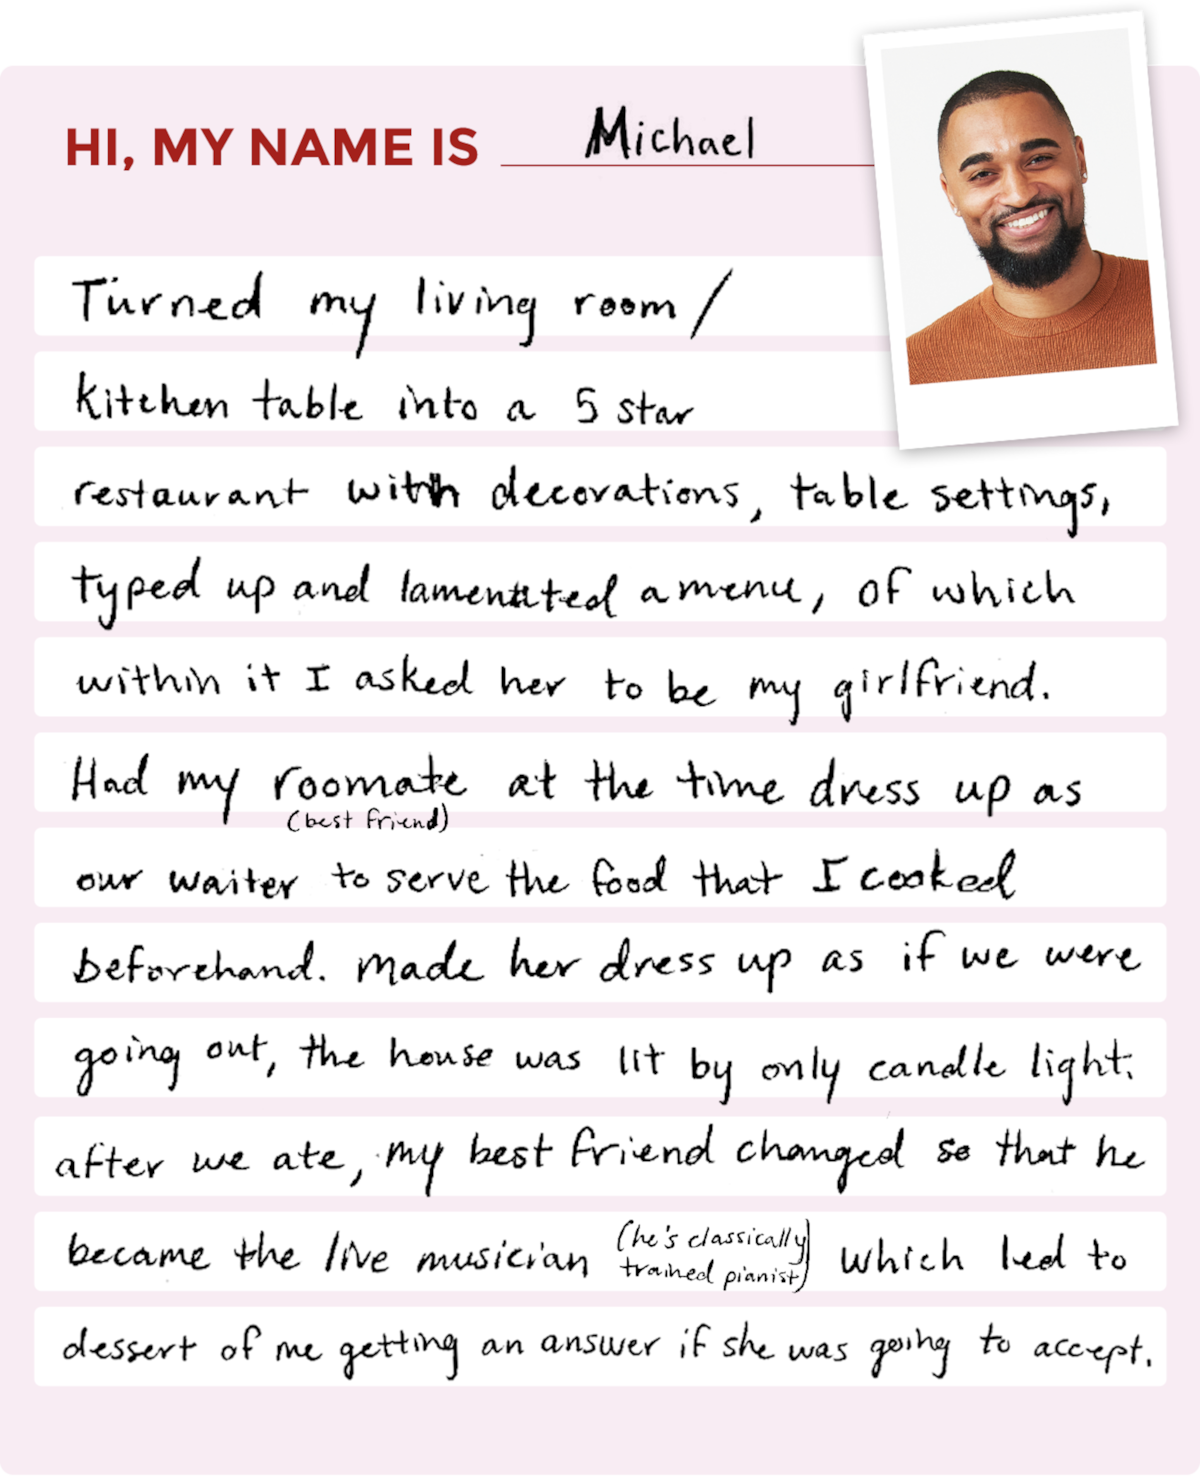 HI, MY NAME IS Michael
Turned my living room/
kitchen table into a 5 star
restaurant with decorations, table settings,
typed up and lamentated a menu, of which
within it I asked her to be my girlfriend.
Had my roomate at the time dress up as
(best friend)
our waiter to serve the food that I cooked
beforehand. Made her dress up as if we were
going out, the house was lit by only candle light.
after we ate, my best friend changed so that he
became the live musician (he's classically trained pianist) which led to
dessert of me getting an answer if she was going to accept.